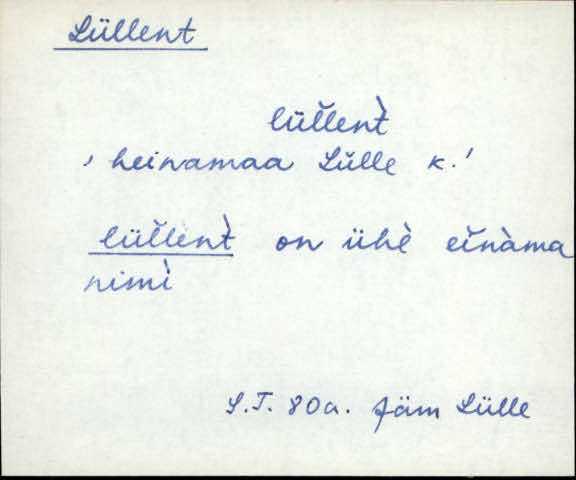 Lüllent
lüĺlent̀
, heinamaa Lülle k.'
lüĺlent̀ on ühè einàma
nimì
S.T. 80a. Jäm Lülle